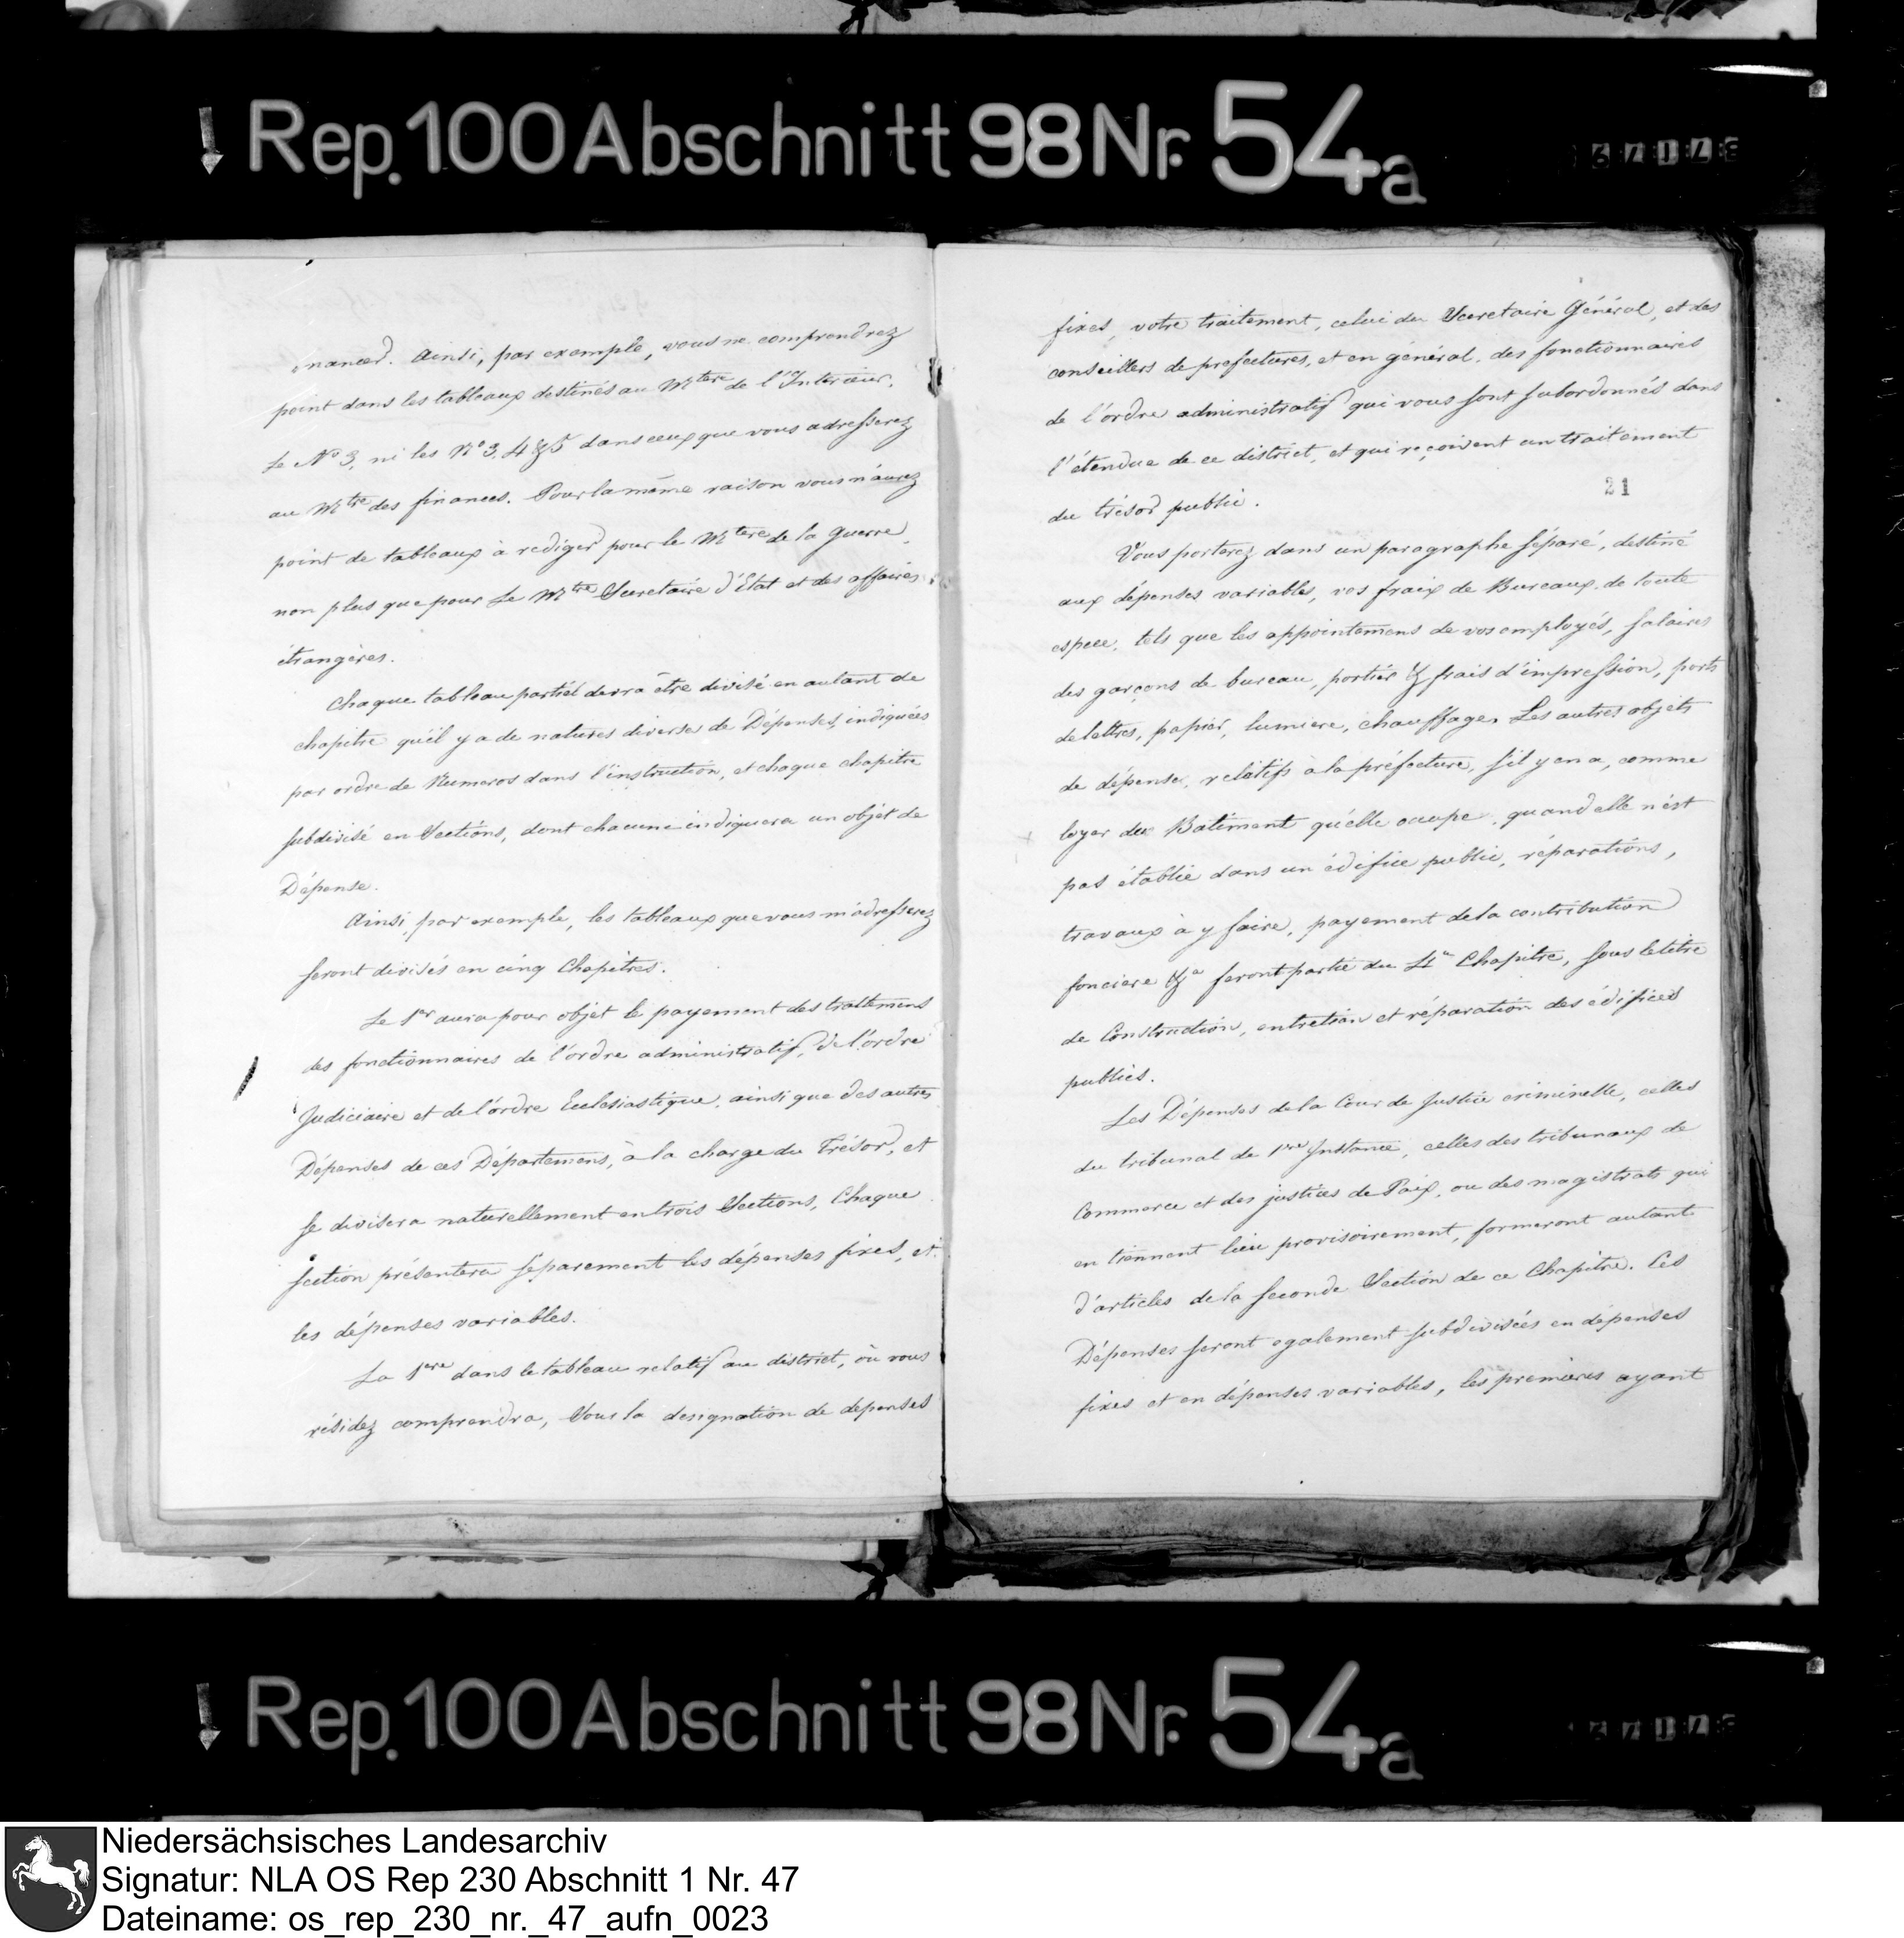 Rep. 100 Abschnitt 98 Nr. 54a
nances. Ainsi, par exemple, vous ne comprendrez
point dans les tableaux destinés au Mtere de l'Interieur,
Le N° 3, ni les N° 3, 4 & 5 dans ceux que vous adresserez
au Mtre des finances. Pour la même raison vous n'aurez
point de tableaux à rediger pour le Mtere de la Guerre,
non plus que pour Le Mtre Secretaire d'État et des affaires
étrangères.
Chaque tableau partiel devra être divisé en autant de
chapitre qu'il y a de natures diverses de Dépenses, indiquées
par ordre de Numeros dans l'instruction, et chaque chapitre
subdivisé en Sections, dont chacune indiquera un objet de
Dépense.
Ainsi, par exemple, les tableaux que vous m'adresserez
seront divisés en cinq Chapitres.
Le 1er aura pour objet le payement des traitemens
des fonctionnaires de l'ordre administratif, de l'ordre
Judiciaire et de l'ordre Ecclesiastique, ainsi que des autres
Dépenses de ces Départemens, à la charge du Trésor, et
se divisera naturellement en trois Sections, Chaque
section présentera séparement les dépenses fixes, et
les dépenses variables.
La 1ere dans le tableau relatif au district, où vous
résidez comprendra, Sous la designation de depenses
fixes, votre traitement, celui du Secretaire Général, et des
conseillers de prefectures, et en général, des fonctionnaires
de l'ordre administratif qui vous sont subordonnés dans
l'étendue de ce district, et qui reçoivent un traitement
21
du trésor public.
Vous porterez dans un paragraphe séparé, destiné
aux dépenses variables, vos fraix de Bureaux de toute
espece, tels que les appointemens de vos employés, salaires
des garçons de bureau, portier & frais d'impression, ports
de lettres, papier, lumiere, chauffage. Les autres objets
de dépense, relatifs à la préfecture, s'il y en a, comme
loyer du Batiment qu'elle occupe, quand elle n'est
pas établie dans un édifice public, réparations,
travaux à y faire, payement de la contribution
fonciere &a feront partie du 4e Chapitre, sous le titre
de Construction, entretien et réparation des édifices
publics.
Les Dépenses de la Cour de Justice criminelle, celles
du tribunal de 1ere Instance, celles des tribunaux de
Commerce et des justices de Paix, ou des magistrats qui
en tiennent lieu provisoirement, formeront autant
d'articles de la seconde Section de ce Chapitre. Ces
Dépenses seront egalement subdivisées en dépenses
fixes et en dépenses variables, les premieres ayant
Rep. 100 Abschnitt 98 Nr. 54a
Niedersächsisches Landesarchiv
Signatur: NLA OS Rep 230 Abschnitt 1 Nr. 47
Dateiname: os_rep_230_nr._47_aufn_0023